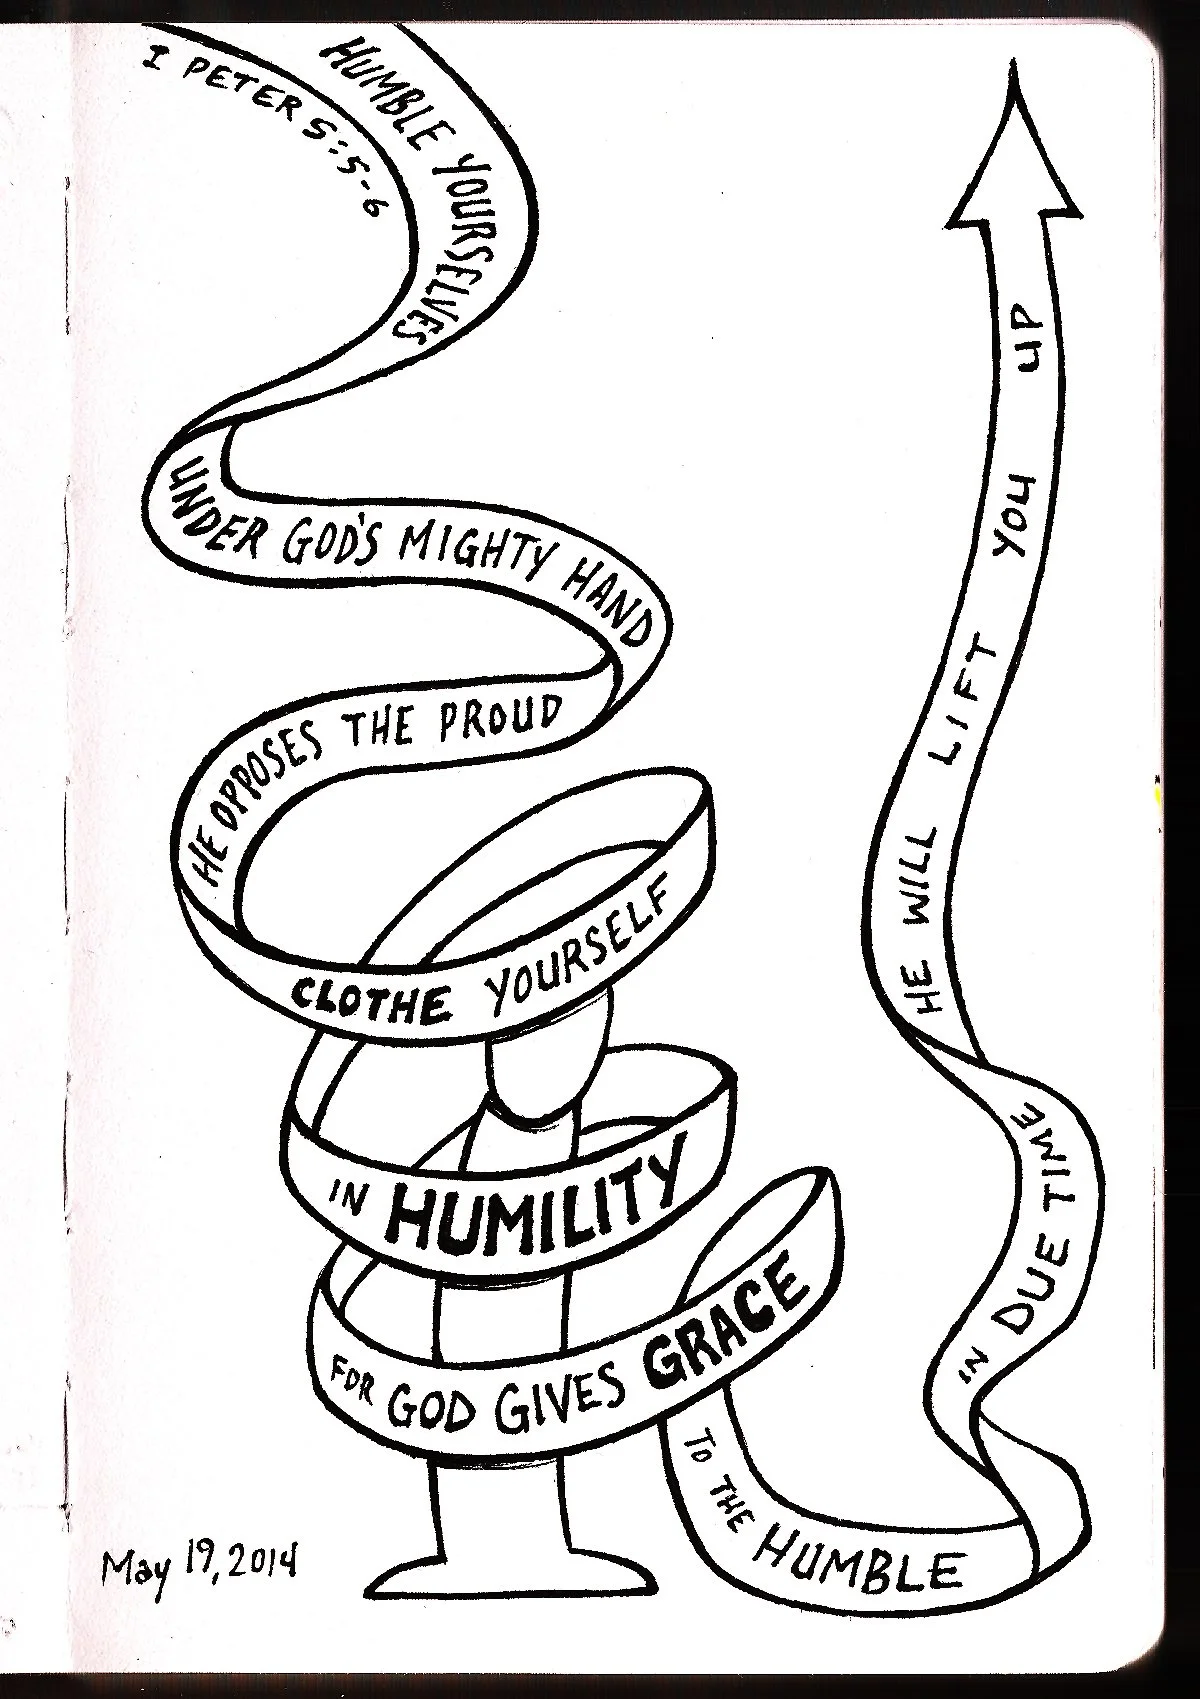 I PETER 5:5-6
HUMBLE YOURSELVES
UNDER GOD'S MIGHTY HAND
HE OPPOSES THE PROUD
CLOTHE YOURSELF
IN HUMILITY
FOR GOD GIVES GRACE
TO THE HUMBLE
IN DUE TIME
HE WILL LIFT YOU UP
May 19, 2014